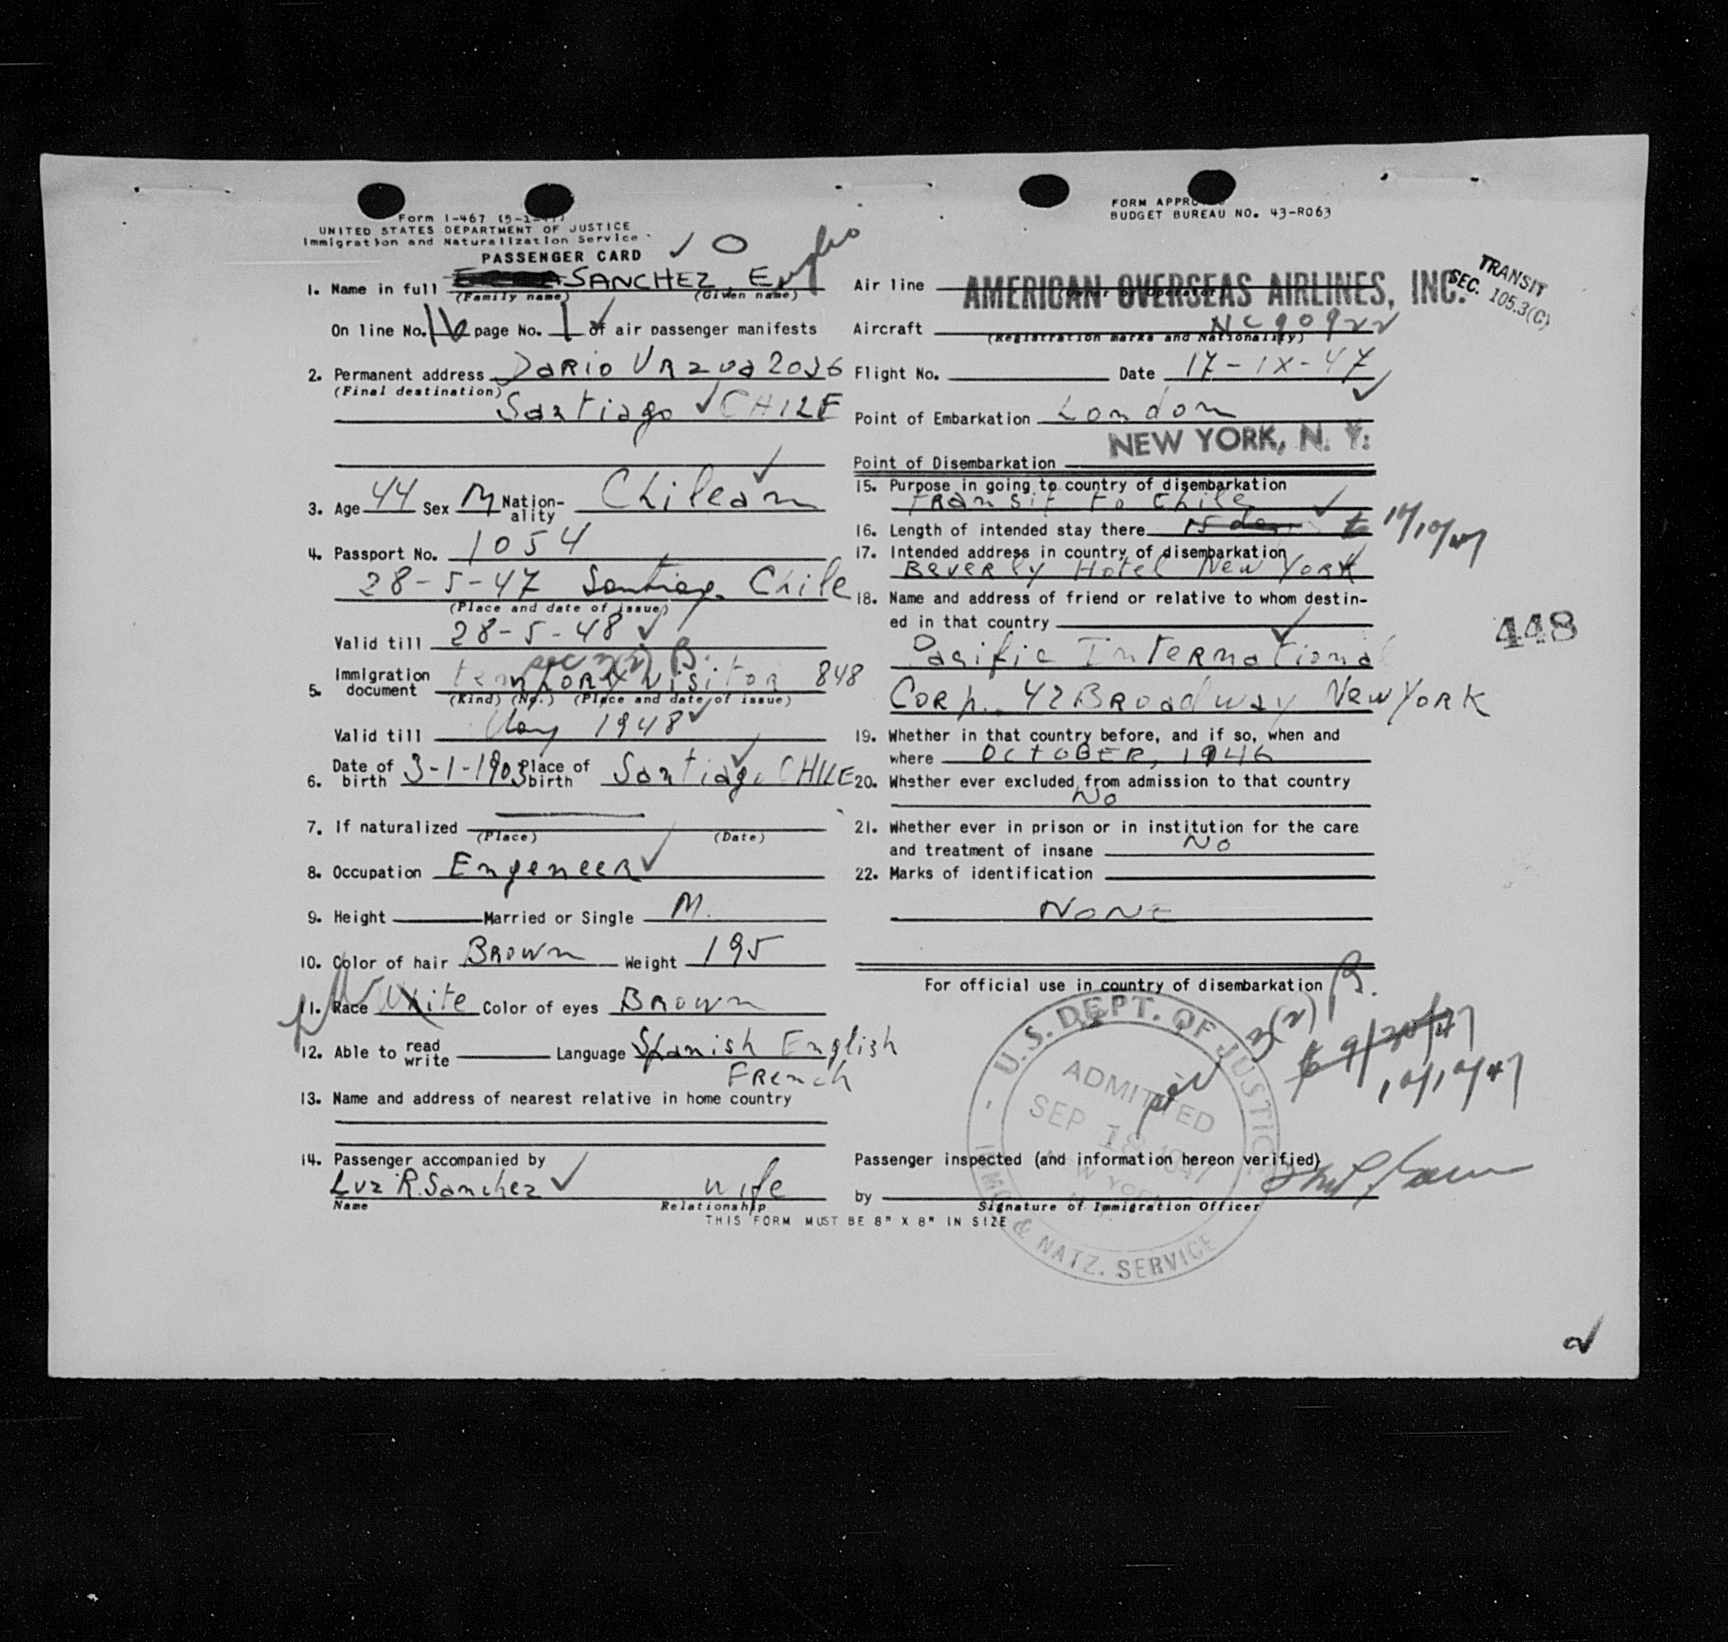 Form I-467
UNITED STATES DEPARTMENT OF JUSTICE
Immigration and Naturalization Service
PASSENGER CARD
1. Name in full SANCHEZ E
(Family name) (Given name)
On line No. 16 page No. 1 of air passenger manifests
2. Permanent address Dario Urzua 2036
(Final destination)
Santiago CHILE
3. Age 44 Sex M Nation-ality Chilean
4. Passport No. 1054
28-5-47 Santiago Chile
(Place and date of issue)
Valid till 28-5-48
sec 3(2) B.
5. Immigration document temporary visitor 848
(Kind) (No.) (Place and date of issue)
Valid till May 1948
6. Date of birth 3-1-1903 Place of birth Santiago CHILE
7. If naturalized
(Place) (Date)
8. Occupation Engeneer
9. Height Married or Single M.
10. Color of hair Brown Weight 195
11. Race White Color of eyes Brown
12. Able to read write Language Spanish English
French
13. Name and address of nearest relative in home country
14. Passenger accompanied by
Luz R. Sanchez wife
Name Relationship
THIS FORM MUST BE 8" X 8" IN SIZE
FORM APPROVED
BUDGET BUREAU NO. 43-R063
TRANSIT
SEC. 105.3(C)
Air line AMERICAN OVERSEAS AIRLINES, INC.
Aircraft NC90922
(Registration marks and Nationality)
Flight No. Date 17-IX-47
Point of Embarkation London
NEW YORK, N. Y.
Point of Disembarkation
15. Purpose in going to country of disembarkation
Transit to Chile
16. Length of intended stay there 15 days to 10/10/47
17. Intended address in country of disembarkation
Beverly Hotel New York
18. Name and address of friend or relative to whom destin-
ed in that country
Pacific International
Corp. 42 Broadway New York
448
19. Whether in that country before, and if so, when and
where OCTOBER, 1946
20. Whether ever excluded from admission to that country
No
21. Whether ever in prison or in institution for the care
and treatment of insane No
22. Marks of identification
NONE
For official use in country of disembarkation
3(2) B.
to 9/30/47
10/10/47
U.S. DEPT. OF JUSTICE
ADMITTED
SEP 18 1947
NEW YORK
IMMG. & NATZ. SERVICE
Passenger inspected (and information hereon verified)
by
Signature of Immigration Officer